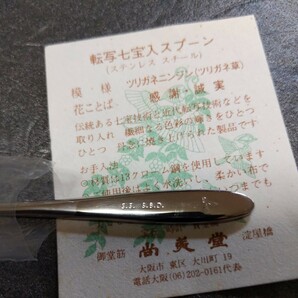 転写七宝入スプーン
(ステンレス スチール)
模様 ツリガネニンジン(ツリガネ草)
花ことば 感謝 誠実
伝統ある七宝技術と近代転写技術などを
取り入れ 繊細なる色彩の輝きをひとつ
ひとつ に焼き上げられた製品です
お手入法
の材質は18クローム鋼を使用しています
使用後は 水洗いし、柔かい布で
いつまでも
S.S. S.B.D.
御堂筋 尚美堂 淀屋橋
大阪市東区大川町19
電話大阪(06)202-0161代表